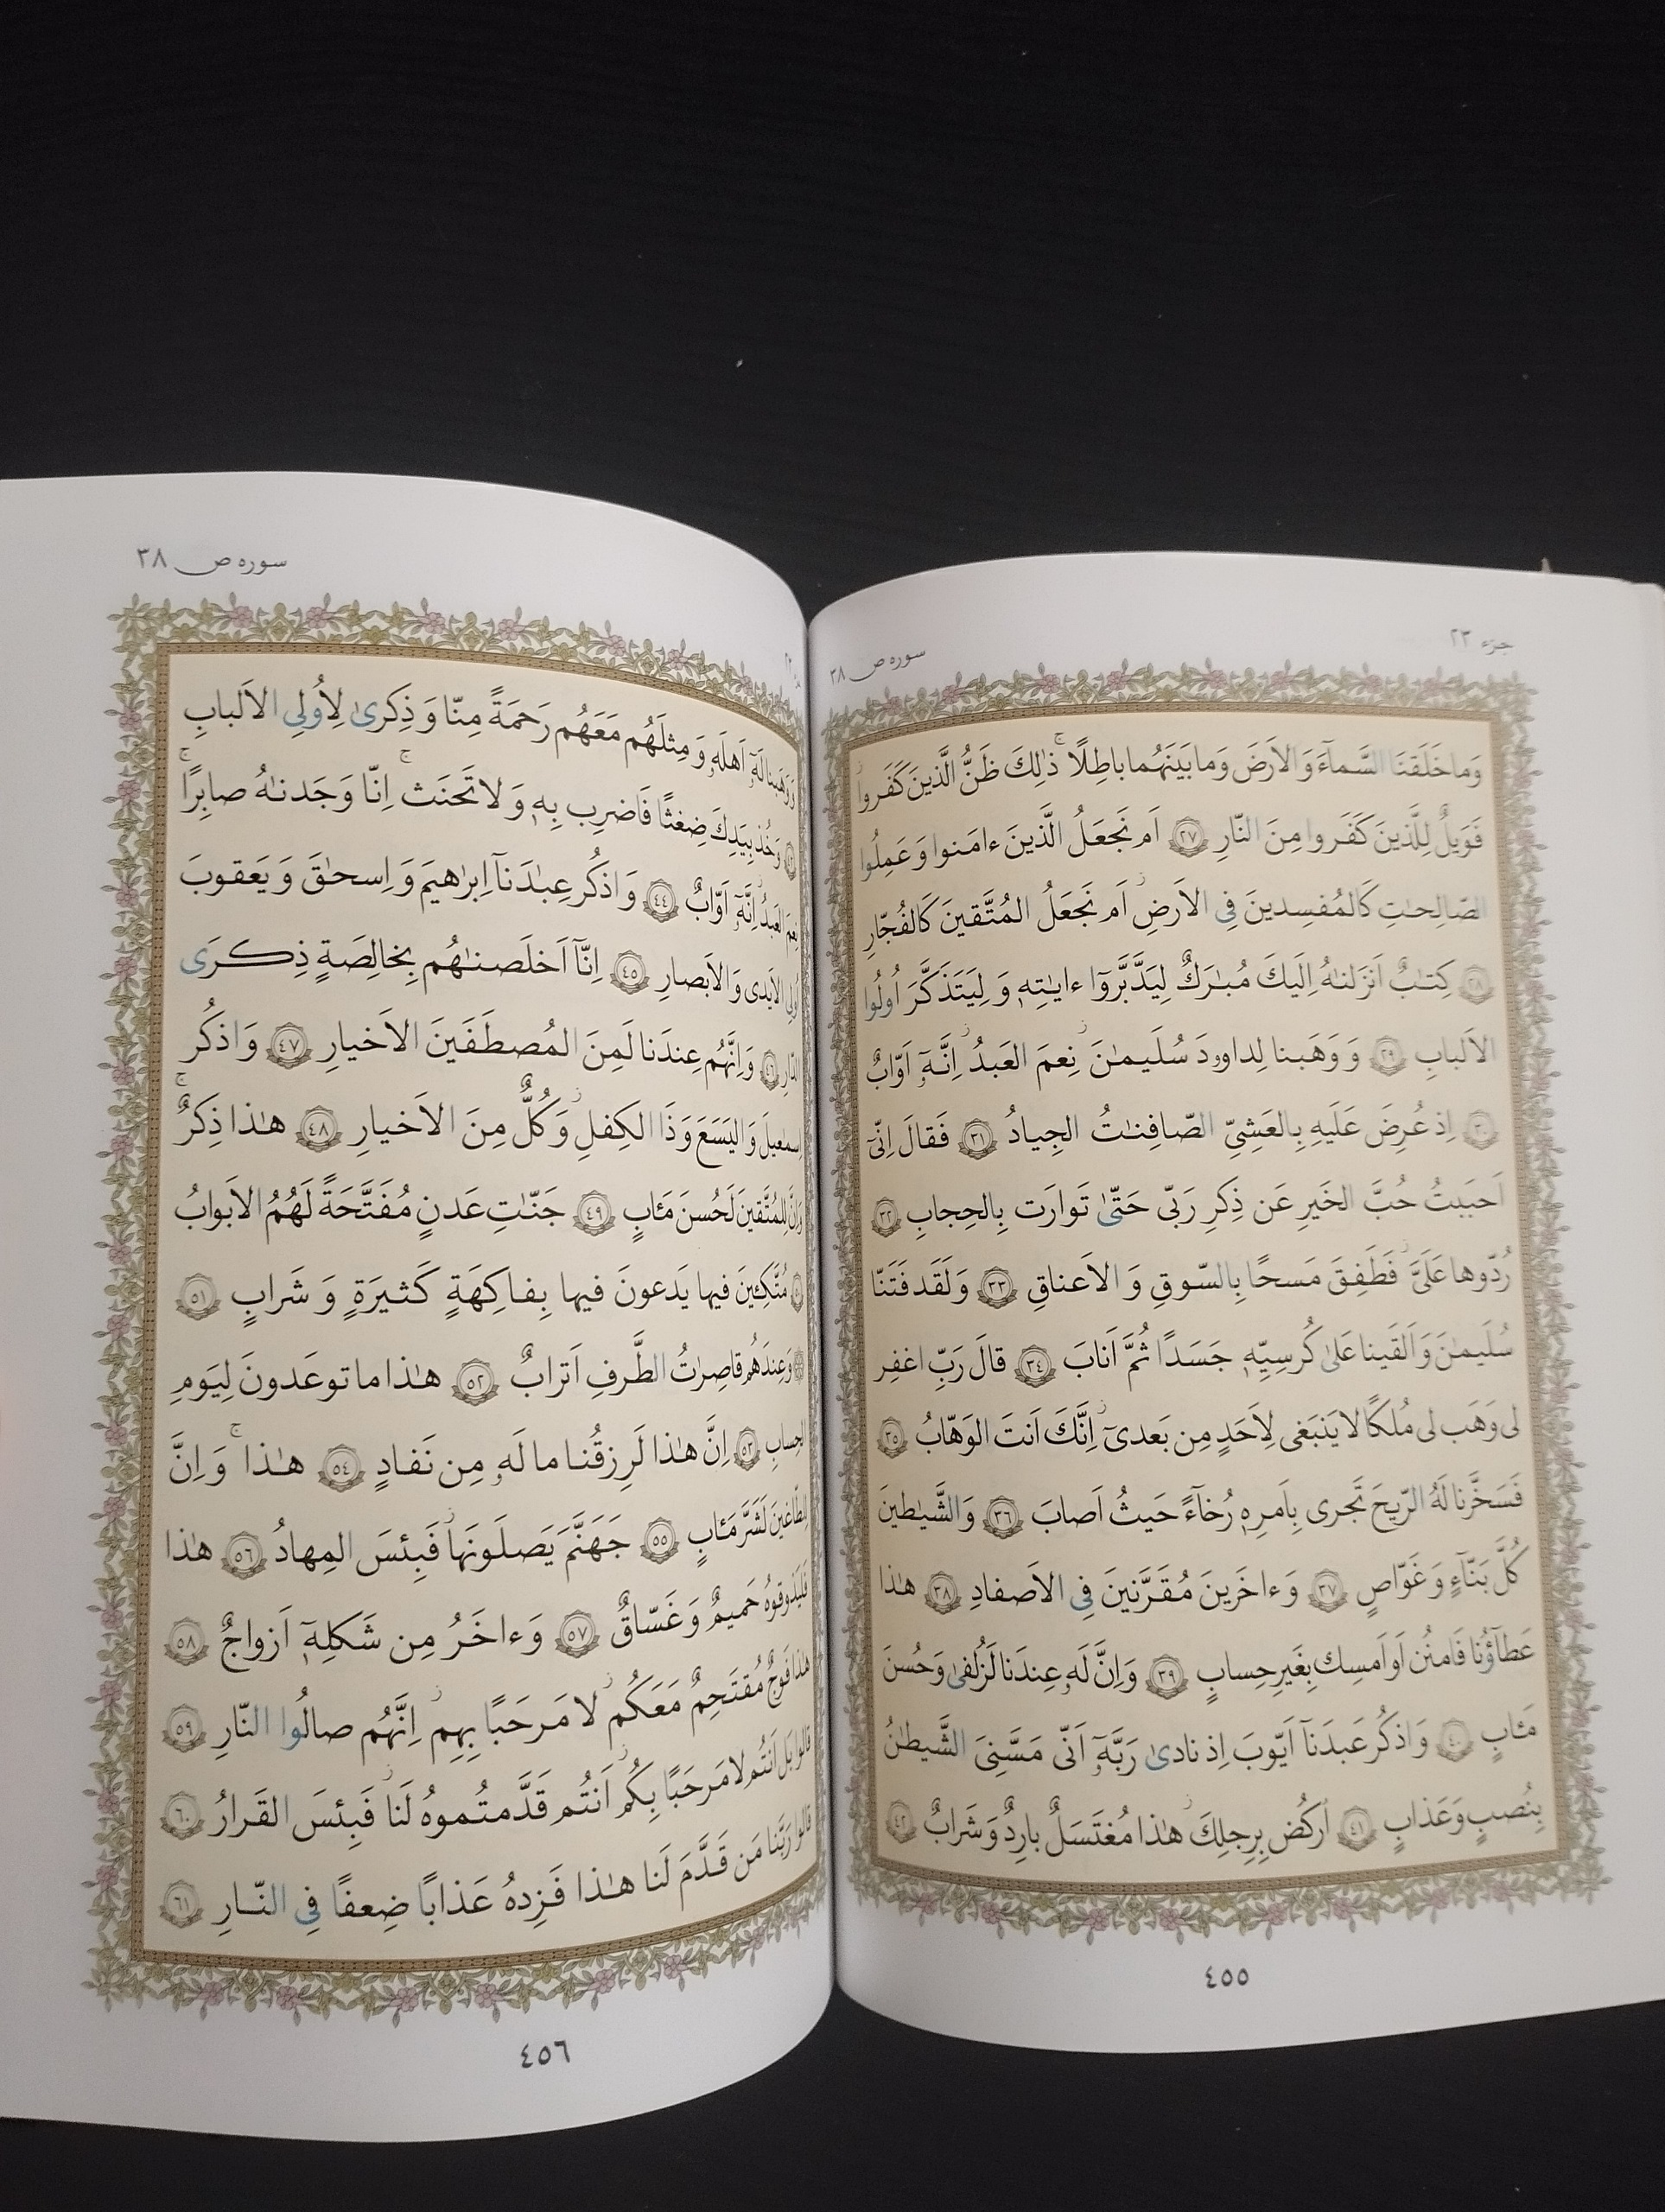 جزء ٢٣
سوره ص ٣٨
وَما خَلَقنَا السَّماءَ وَ الاَرضَ وَما بَينَهُما باطِلًا ۚ ذٰلِكَ ظَنُّ الَّذينَ كَفَروا ۚ
فَوَيلٌ لِلَّذينَ كَفَروا مِنَ النّارِ ﴿٢٧﴾ اَم نَجعَلُ الَّذينَ ءامَنوا وَ عَمِلُوا
الصّالِحٰتِ كَالمُفسِدينَ فِي الاَرضِ اَم نَجعَلُ المُتَّقينَ كَالفُجّارِ
﴿٢٨﴾ كِتٰبٌ اَنزَلنٰهُ اِلَيكَ مُبٰرَكٌ لِيَدَّبَّروٓا ءايٰتِهٖ وَ لِيَتَذَكَّرَ اُولُوا
الاَلبابِ ﴿٢٩﴾ وَ وَهَبنا لِداوودَ سُلَيمٰنَ ۚ نِعمَ العَبدُ ۖ اِنَّهٗٓ اَوّابٌ
﴿٣٠﴾ اِذ عُرِضَ عَلَيهِ بِالعَشِيِّ الصّافِنٰتُ الجِيادُ ﴿٣١﴾ فَقالَ اِنّىٓ
اَحبَبتُ حُبَّ الخَيرِ عَن ذِكرِ رَبّى حَتّىٰ تَوارَت بِالحِجابِ ﴿٣٢﴾
رُدّوها عَلَىَّ ۖ فَطَفِقَ مَسحًا بِالسّوقِ وَ الاَعناقِ ﴿٣٣﴾ وَ لَقَد فَتَنّا
سُلَيمٰنَ وَ اَلقَينا عَلىٰ كُرسِيِّهٖ جَسَدًا ثُمَّ اَنابَ ﴿٣٤﴾ قالَ رَبِّ اغفِر
لى وَهَب لى مُلكًا لا يَنبَغى لِاَحَدٍ مِن بَعدىٓ ۖ اِنَّكَ اَنتَ الوَهّابُ ﴿٣٥﴾
فَسَخَّرنا لَهُ الرّيحَ تَجرى بِاَمرِهٖ رُخآءً حَيثُ اَصابَ ﴿٣٦﴾ وَ الشَّيٰطينَ
كُلَّ بَنّآءٍ وَ غَوّاصٍ ﴿٣٧﴾ وَ ءاخَرينَ مُقَرَّنينَ فِي الاَصفادِ ﴿٣٨﴾ هٰذا
عَطآؤُنا فَامنُن اَو اَمسِك بِغَيرِ حِسابٍ ﴿٣٩﴾ وَ اِنَّ لَهٗ عِندَنا لَزُلفىٰ وَ حُسنَ
مَـٔابٍ ﴿٤٠﴾ وَ اذكُر عَبدَنآ اَيّوبَ اِذ نادىٰ رَبَّهٗٓ اَنّى مَسَّنِىَ الشَّيطٰنُ
بِنُصبٍ وَ عَذابٍ ﴿٤١﴾ اُركُض بِرِجلِكَ ۖ هٰذا مُغتَسَلٌ بارِدٌ وَ شَرابٌ ﴿٤٢﴾
٤٥٥
سوره ص ٣٨
وَ وَهَبنا لَهٗٓ اَهلَهٗ وَ مِثلَهُم مَعَهُم رَحمَةً مِنّا وَ ذِكرىٰ لِاُولِى الاَلبابِ
﴿٤٣﴾ وَ خُذ بِيَدِكَ ضِغثًا فَاضرِب بِهٖ وَ لا تَحنَث ۗ اِنّا وَجَدنٰهُ صابِرًا ۚ
نِعمَ العَبدُ ۖ اِنَّهٗٓ اَوّابٌ ﴿٤٤﴾ وَ اذكُر عِبٰدَنآ اِبرٰهيمَ وَ اِسحٰقَ وَ يَعقوبَ
اُولِى الاَيدى وَ الاَبصارِ ﴿٤٥﴾ اِنّآ اَخلَصنٰهُم بِخالِصَةٍ ذِكرَى
الدّارِ ﴿٤٦﴾ وَ اِنَّهُم عِندَنا لَمِنَ المُصطَفَينَ الاَخيارِ ﴿٤٧﴾ وَ اذكُر
اِسمٰعيلَ وَ اليَسَعَ وَ ذَا الكِفلِ ۖ وَ كُلٌّ مِنَ الاَخيارِ ﴿٤٨﴾ هٰذا ذِكرٌ ۚ
وَ اِنَّ لِلمُتَّقينَ لَحُسنَ مَـٔابٍ ﴿٤٩﴾ جَنّٰتِ عَدنٍ مُفَتَّحَةً لَهُمُ الاَبوابُ
﴿٥٠﴾ مُتَّكِـٔينَ فيها يَدعونَ فيها بِفاكِهَةٍ كَثيرَةٍ وَ شَرابٍ ﴿٥١﴾
۞ وَ عِندَهُم قاصِراتُ الطَّرفِ اَترابٌ ﴿٥٢﴾ هٰذا ما توعَدونَ لِيَومِ
الحِسابِ ﴿٥٣﴾ اِنَّ هٰذا لَرِزقُنا ما لَهٗ مِن نَفادٍ ﴿٥٤﴾ هٰذا ۚ وَ اِنَّ
لِلطّاغينَ لَشَرَّ مَـٔابٍ ﴿٥٥﴾ جَهَنَّمَ يَصلَونَها ۖ فَبِئسَ المِهادُ ﴿٥٦﴾ هٰذا
فَليَذوقوهُ حَميمٌ وَ غَسّاقٌ ﴿٥٧﴾ وَ ءاخَرُ مِن شَكلِهٖٓ اَزواجٌ ﴿٥٨﴾
هٰذا فَوجٌ مُقتَحِمٌ مَعَكُم ۖ لا مَرحَبًا بِهِم ۖ اِنَّهُم صالُوا النّارِ ﴿٥٩﴾
قالوا بَل اَنتُم لا مَرحَبًا بِكُم ۖ اَنتُم قَدَّمتُموهُ لَنا ۖ فَبِئسَ القَرارُ ﴿٦٠﴾
قالوا رَبَّنا مَن قَدَّمَ لَنا هٰذا فَزِدهُ عَذابًا ضِعفًا فِي النّارِ ﴿٦١﴾
٤٥٦